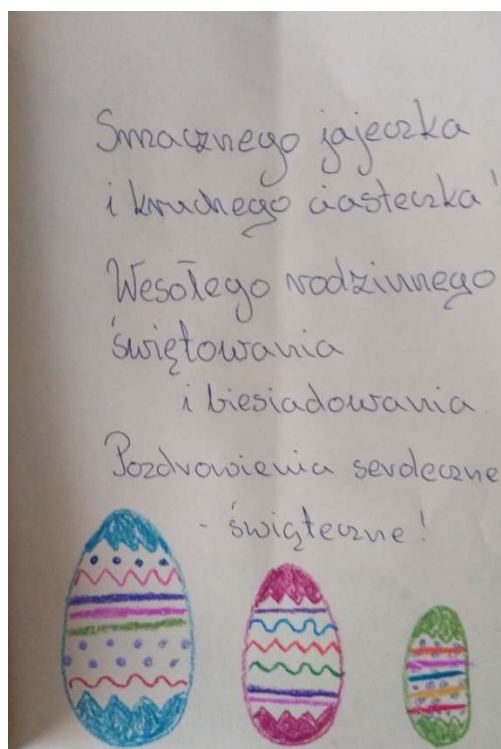 Smacznego jajeczka
i kruchego ciasteczka!
Wesołego rodzinnego
świętowania
i biesiadowania
Pozdrowienia serdeczne
- świąteczne!